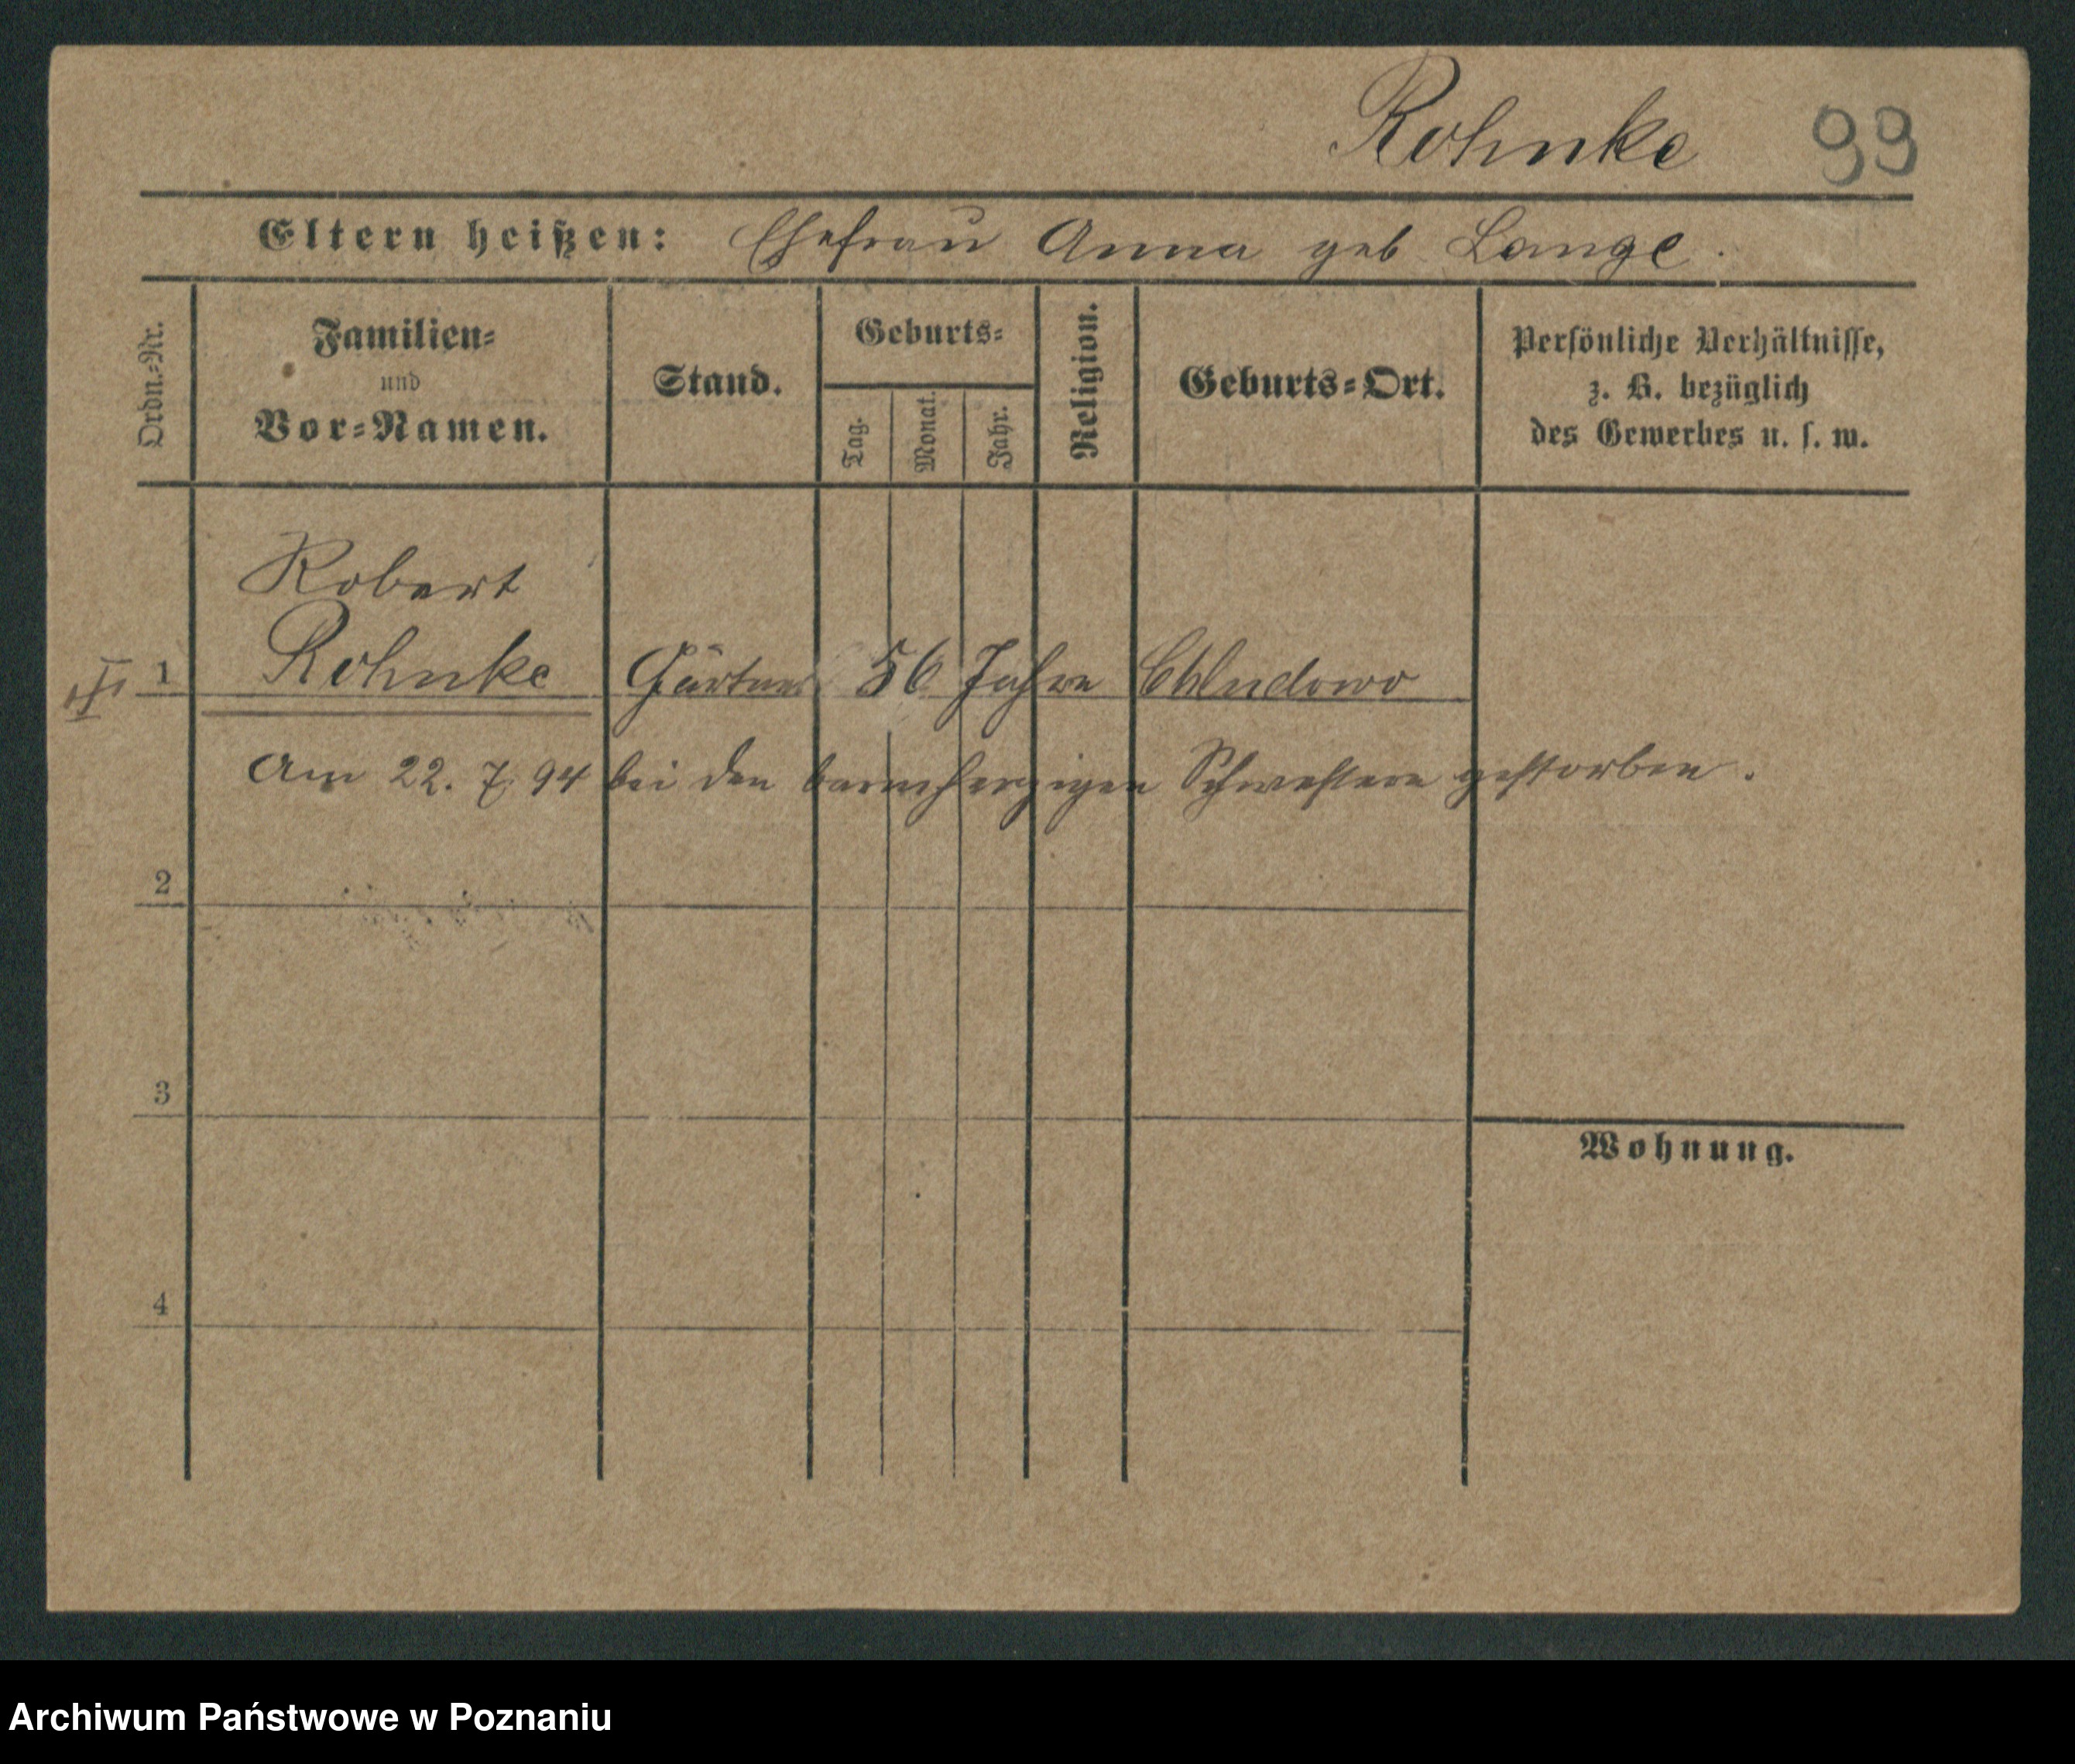 Rohnke 99
Eltern heißen: Ehefrau Anna geb Lange.
Ordn.=Nr.
Familien=
und
Vor=Namen.
Stand.
Geburts=
Tag.
Monat.
Jahr.
Religion.
Geburts=Ort.
Persönliche Verhältnisse,
z. B. bezüglich
des Gewerbes u. s. w.
Robert
1 Rohnke Gärtner 56 Jahre Chludowo
Am 22. 7. 94 bei den barmherzigen Schwestern gestorben.
2
3
Wohnung.
4
Archiwum Państwowe w Poznaniu